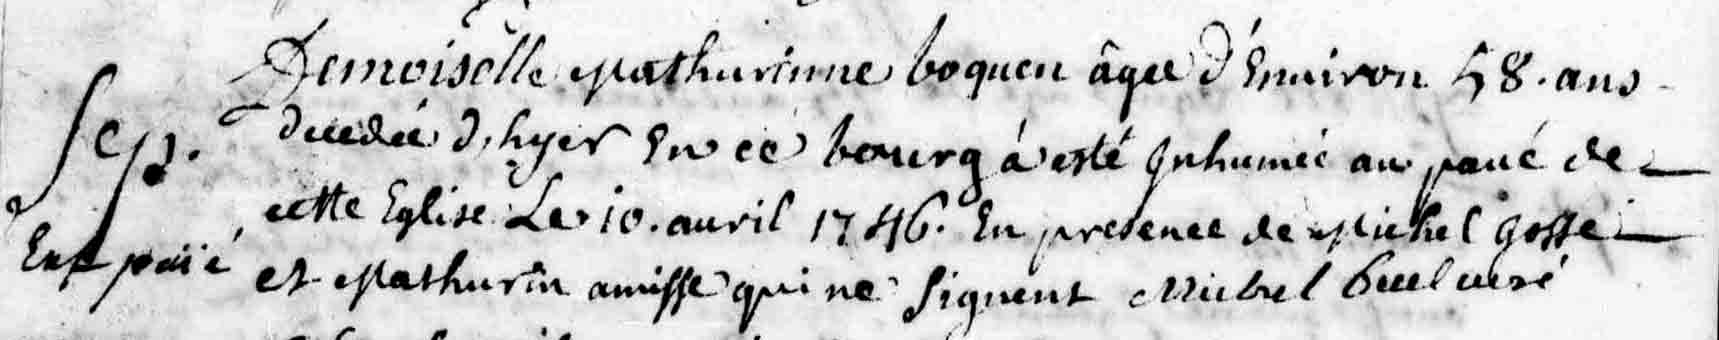 Demoiselle Mathurinne boquen âgee d'Enuiron 58. ans
Sep. decedée d'hyer En ce bourg á esté Inhumée au paué de
cette Eglise Le 10. auril 1746. En presence de Michel gosse
Enf payé et Mathurin amisse qui ne signent Michel